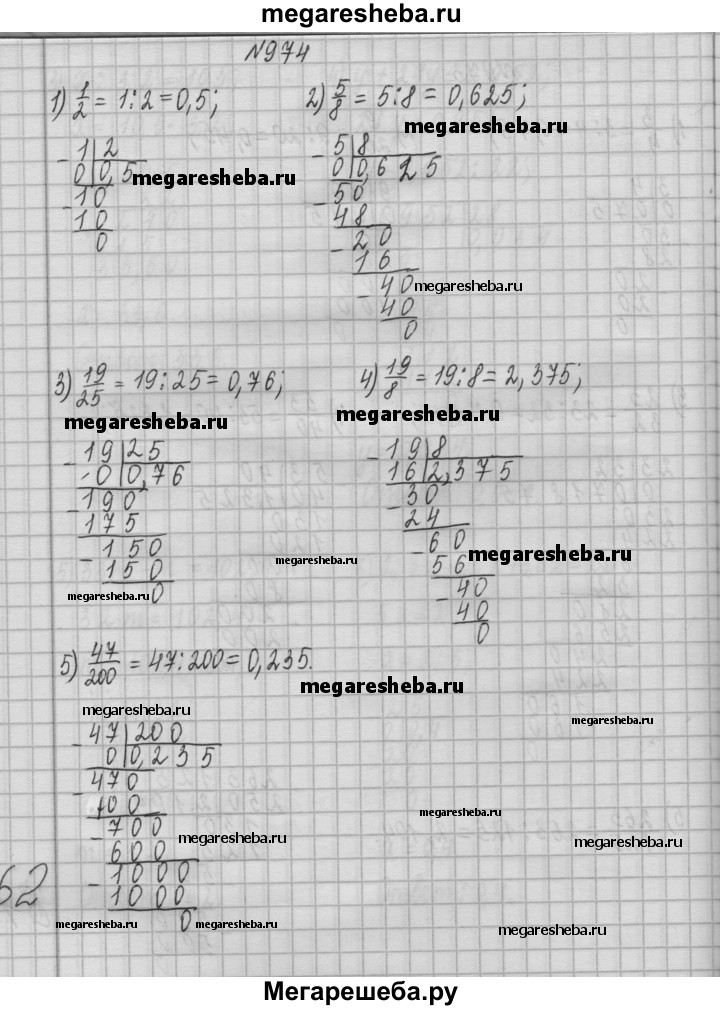 megaresheba.ru
№974
1) 1/2 = 1:2=0,5;
2) 5/8 = 5:8 = 0,625;
megaresheba.ru
- 1 | 2
0 | 0,5
megaresheba.ru
- 10
10
0
- 5 | 8
0 | 0,625
- 50
48
- 20
16
- 40
megaresheba.ru
40
0
3) 19/25 = 19:25=0,76;
4) 19/8 = 19:8=2,375;
megaresheba.ru
megaresheba.ru
- 19 | 25
0 | 0,76
- 190
175
- 150
150
0
megaresheba.ru
megaresheba.ru
- 19 | 8
16 | 2,375
- 30
24
- 60
megaresheba.ru
56
- 40
40
0
5) 47/200 = 47:200=0,235.
megaresheba.ru
megaresheba.ru
megaresheba.ru
- 47 | 200
0 | 0,235
- 470
400
- 700
megaresheba.ru
megaresheba.ru
megaresheba.ru
600
- 1000
1000
0
62
megaresheba.ru
megaresheba.ru
megaresheba.ru
Мегарешеба.ру